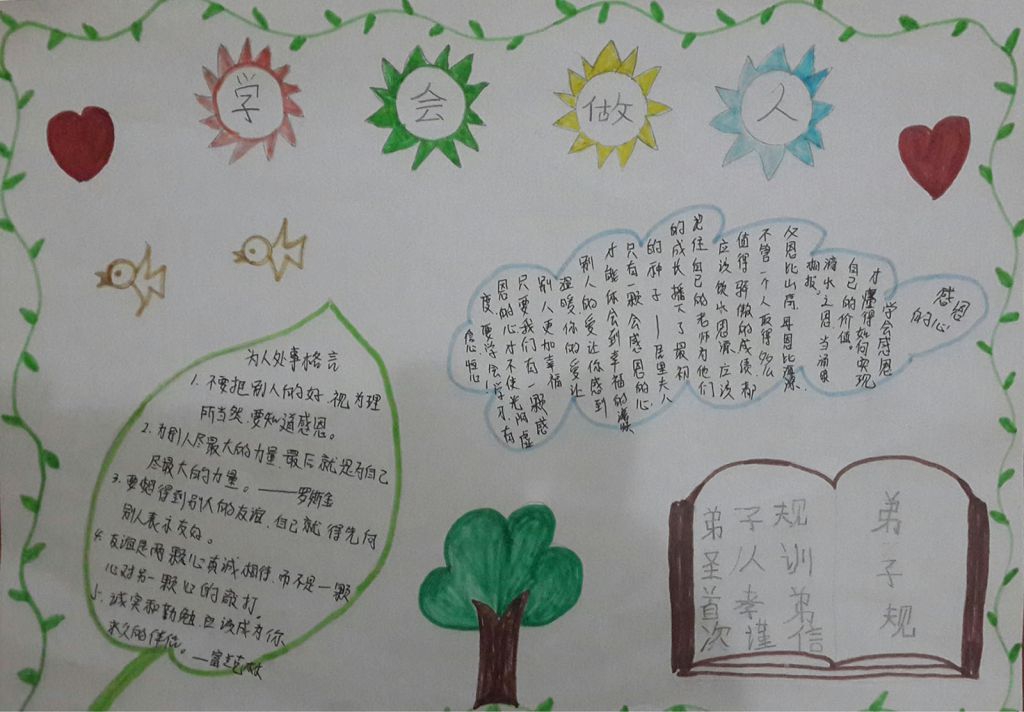 学会做人
感恩
的心
学会感恩
才懂得如何实现
自己的价值。
滴水之恩,当涌泉
相报。
父恩比山高,母恩比海深
不管一个人取得多么
值得骄傲的成绩,都
应该饮水思源,应该
记住自己的老师为他们
的成长播下了最初
的种子——居里夫人
只有一颗会感恩的心
才能体会到幸福的
别人的爱让你感到
温暖,你的爱让
别人更加幸福
只要我们有一颗感
恩的心才不使光阴虚
度,要学会学习,有
信恒心!
为人处事格言
1.不要把别人的好,视为理
所当然,要知道感恩。
2.为别人尽最大的力量,最后就是为自己
尽最大的力量。——罗斯金
3.要想得到别人的友谊,自己就得先向
别人表示友好。
4.友谊是两颗心真诚相待,而不是一颗
心对另一颗心的敲打。
5.诚实和勤勉,应该成为你
永久的伴侣。—富兰克林
弟子规
圣人训
首孝弟
次谨信
弟
子
规